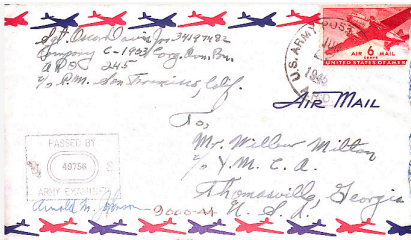 Sgt. Oscar Davis Jr. 34197482
Company C-1953
A P O 245
c/o P.M. San Francisco, Calif.
U.S. ARMY
1945
AIR 6 MAIL
CENTS
UNITED STATES OF AMERICA
AIR MAIL
To,
Mr. Wilbur Milton
c/o Y. M. C. A.
Thomasville, Georgia
U. S. A.
PASSED BY
49756
S
ARMY EXAMINER
Arnold M.